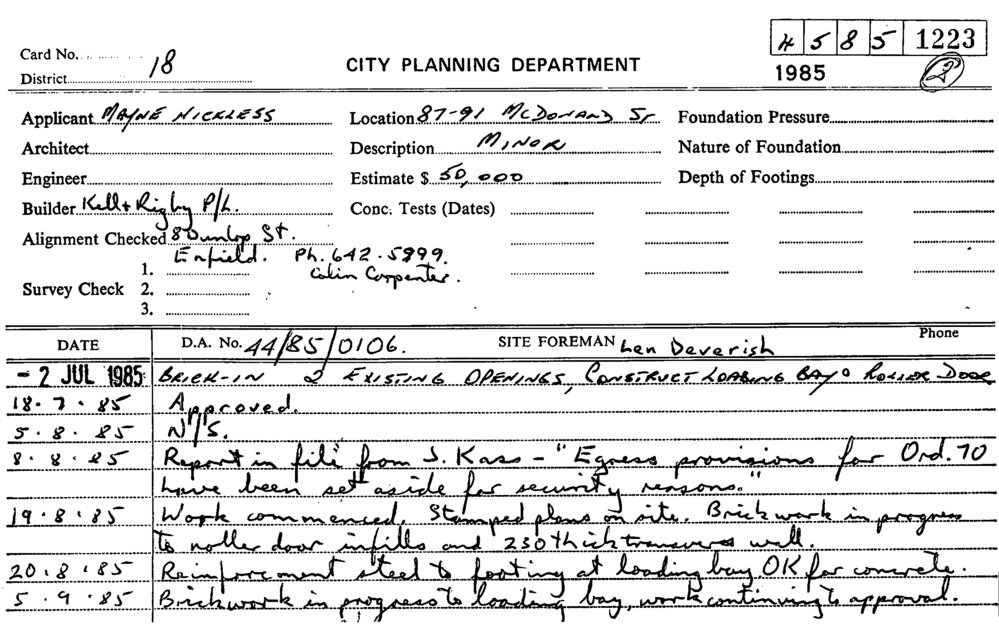 4 5 8 5 1223
Card No.
District 18
CITY PLANNING DEPARTMENT
1985
2
Applicant MAYNE NICKLESS
Location 87-91 McDONALD ST
Foundation Pressure
Architect
Description MINOR
Nature of Foundation
Engineer
Estimate $ 50,000
Depth of Footings
Builder Kell & Rigby P/L.
Conc. Tests (Dates)
Alignment Checked 8 Dunlop St.
Enfield. Ph. 642.5999.
1. Colin Carpenter.
Survey Check 2.
3.
DATE D.A. No. 44/85/0106. SITE FOREMAN Len Deverish Phone
- 2 JUL 1985 BRICK-IN 2 EXISTING OPENINGS, CONSTRUCT LOADING BAY & ROLLER DOOR
18.7.85 Approved.
5.8.85 N/S.
8.8.85 Report in file from J. Kass - "Egress provisions for Ord.70
have been set aside for security reasons."
19.8.85 Work commenced. Stamped plans on site. Brickwork in progress
to roller door infills and 230 thick transverse wall.
20.8.85 Reinforcement steel to footing at loading bay OK for concrete.
5.9.85 Brickwork in progress to loading bay, work continuing to approval.